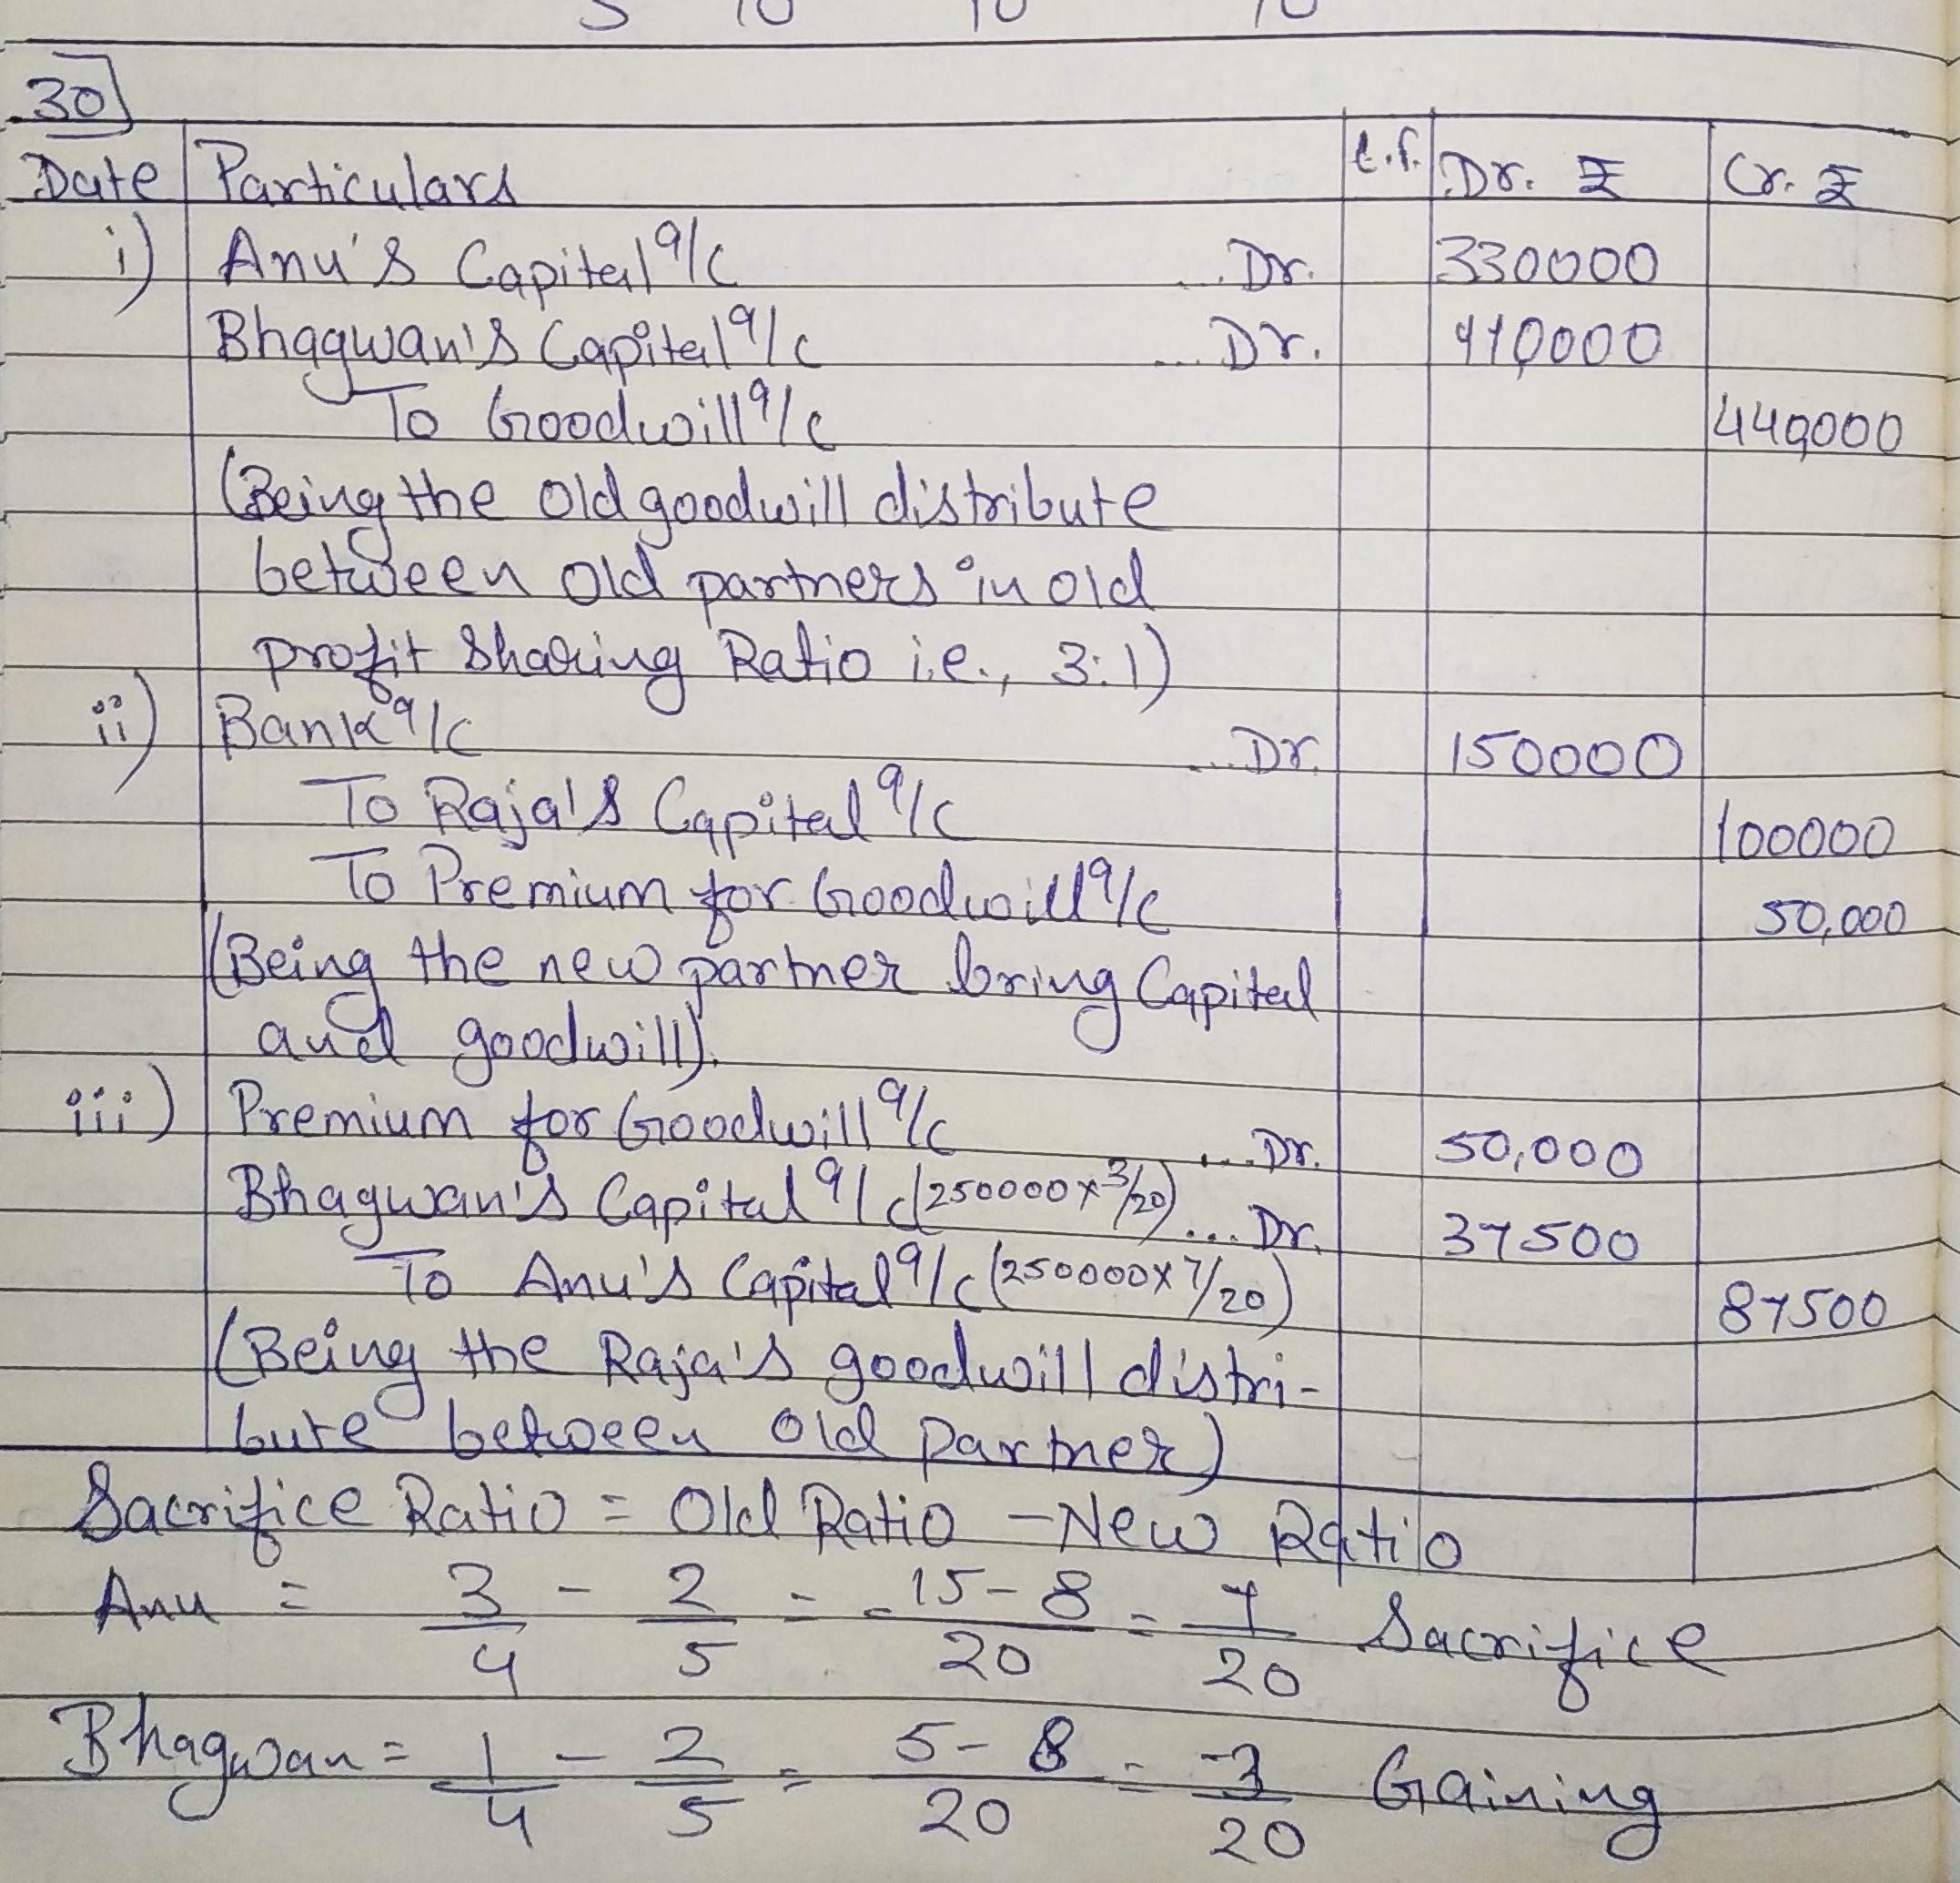 30
Date Particulars L.f. Dr. ₹ Cr. ₹
i) Anu's Capital a/c ...Dr. 330000
Bhagwan's Capital a/c ...Dr. 110000
To Goodwill a/c 440000
(Being the old goodwill distribute
between old partners in old
profit sharing Ratio i.e., 3:1)
ii) Bank a/c ...Dr. 150000
To Raja's Capital a/c 100000
To Premium for Goodwill a/c 50,000
(Being the new partner bring Capital
and goodwill).
iii) Premium for Goodwill a/c ...Dr. 50,000
Bhagwan's Capital a/c (250000 x 3/20) ...Dr. 37500
To Anu's Capital a/c (250000 x 7/20) 87500
(Being the Raja's goodwill distri-
bute between old partner)
Sacrifice Ratio = Old Ratio - New Ratio
Anu = 3/4 - 2/5 = 15-8/20 = 7/20 Sacrifice
Bhagwan = 1/4 - 2/5 = 5-8/20 = -3/20 Gaining